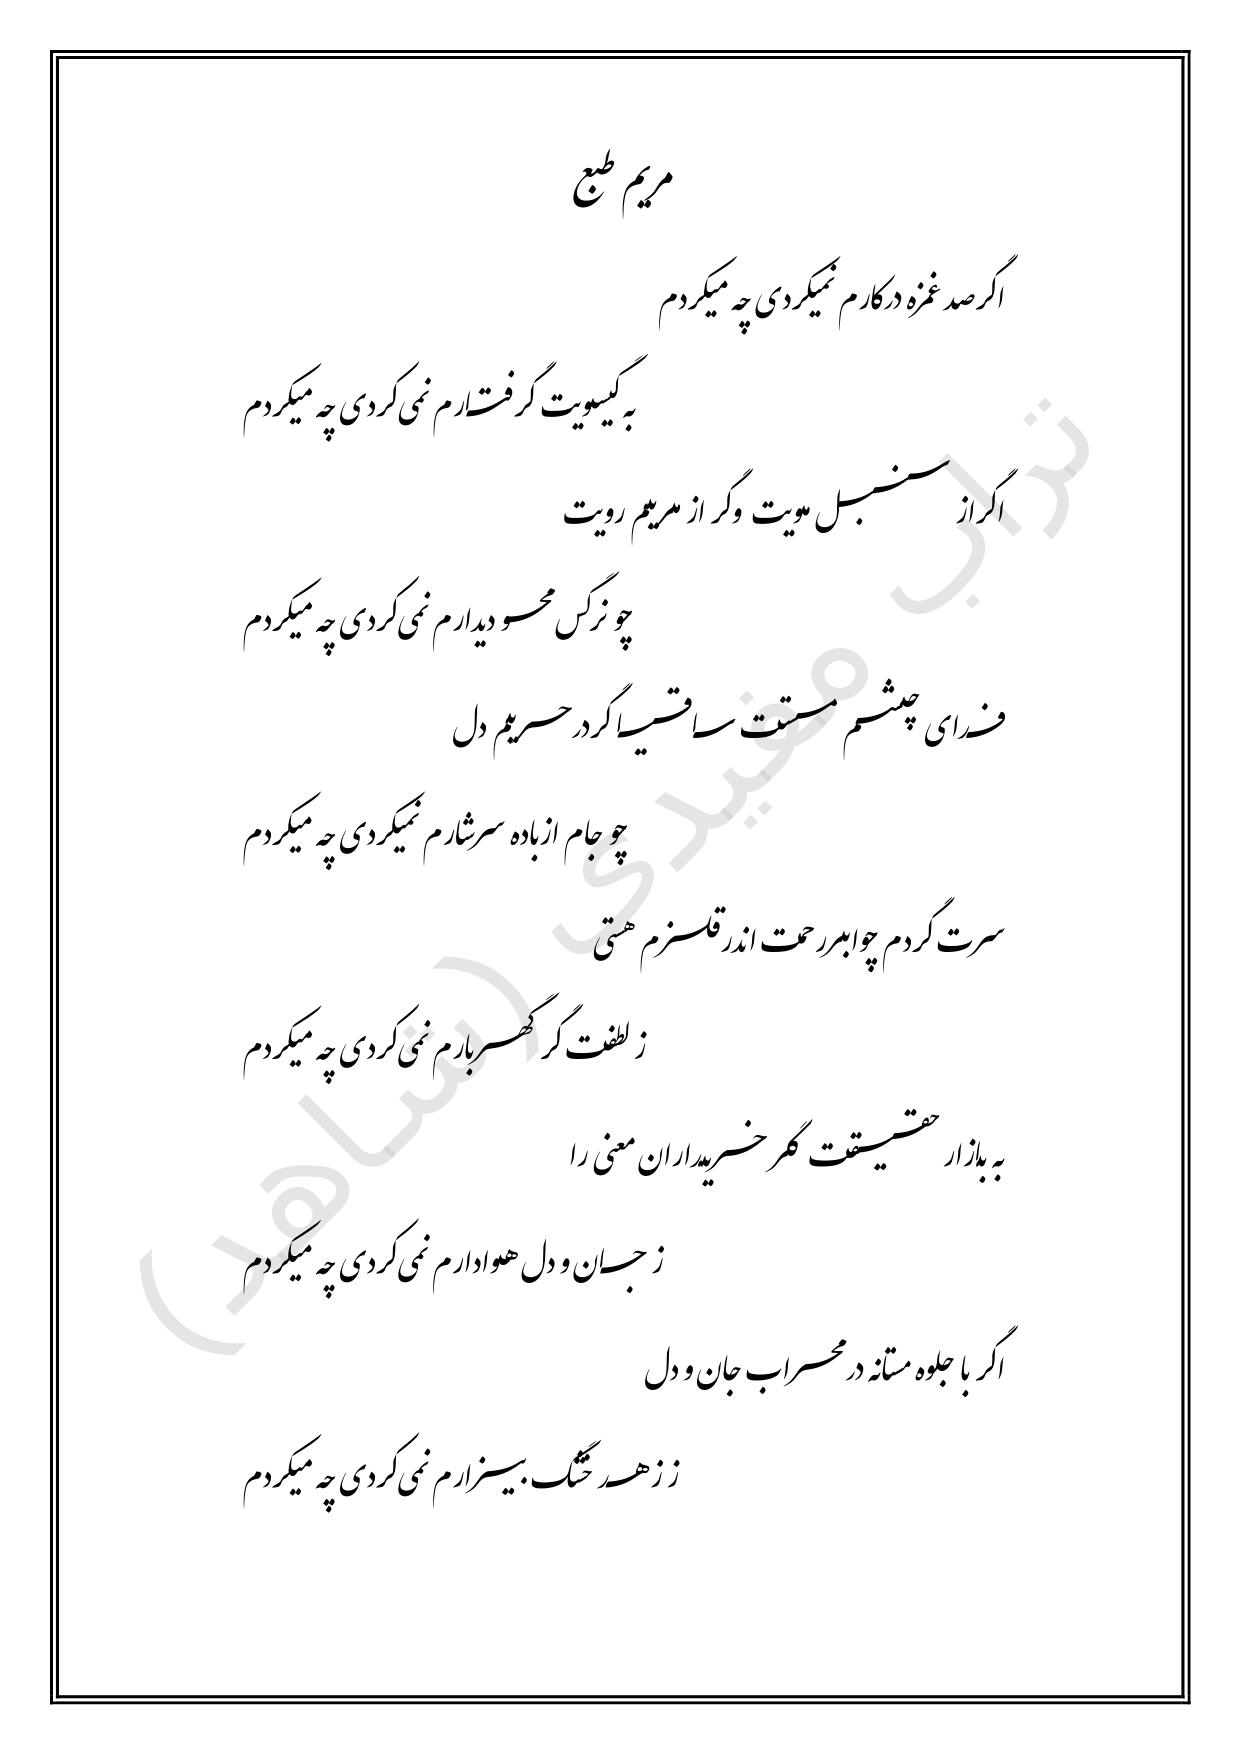 مریم طبع
اگر صد غمزه در کارم نمیکردی چه میکردم
به گیسویت گرفتارم نمی کردی چه میکردم
اگر از سنبل مویت وگر از مریم رویت
چو نرگس محو دیدارم نمی کردی چه میکردم
فرای چشم مستت ساقیا گر در حریم دل
چو جام از باده سرشارم نمیکردی چه میکردم
سرت گردم چو ابر رحمت اندر قلزم هستی
ز لطفت گر گهر بارم نمی کردی چه میکردم
به بازار حقیقت گر خریداران معنی را
ز جان و دل هوادارم نمی کردی چه میکردم
اگر با جلوه مستانه در محراب جان و دل
ز زهد خشک بیزارم نمی کردی چه میکردم
تراب مفیدی (شاهد)